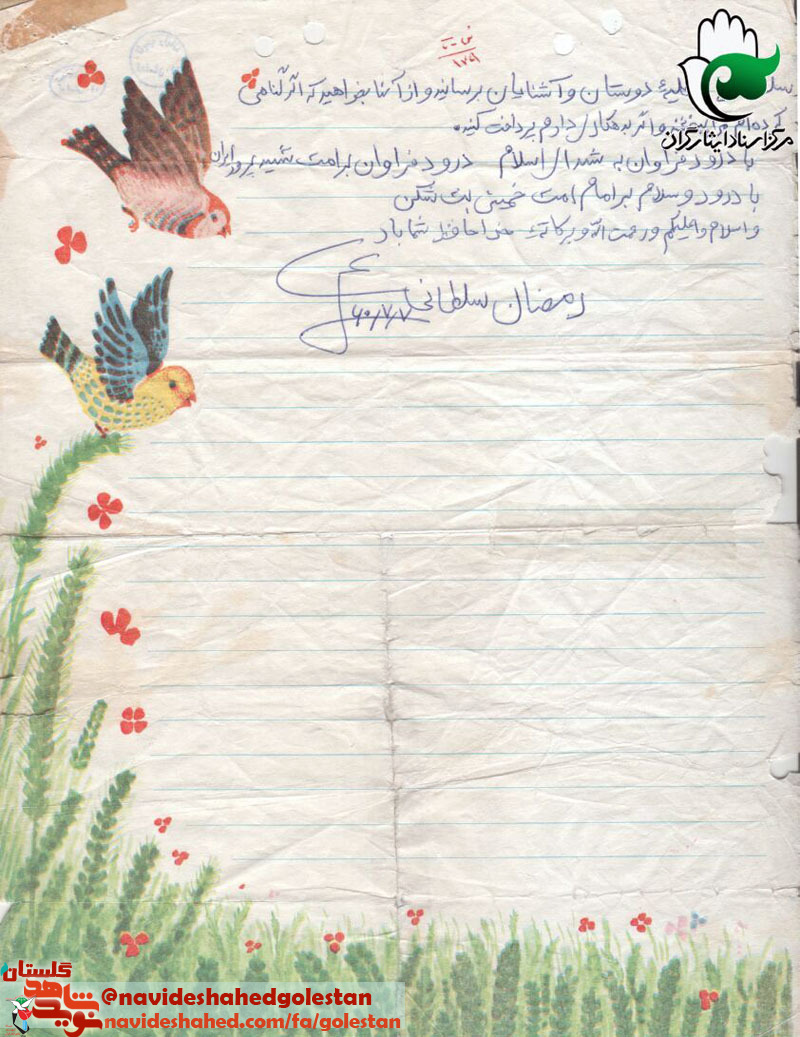 مرکز اسناد ایثارگران
۱۷۹
سلام کلیهٔ دوستان و آشنایان برسانید و از آنها بخواهید که اگر گناهی
کرده‌ام و اگر بدهکاری دارم پرداخت کنید.
با درود فراوان به شهدای اسلام درود فراوان بر امت شهید پرور ایران
با درود و سلام بر امام امت خمینی بت شکن
واسلام و علیکم ورحمت الله و برکاته خدا حافظ شما باد
رمضان سلطانی ۶۰/۷/۷
گلستان
نوید شاهد
@navideshahedgolestan
navideshahed.com/fa/golestan